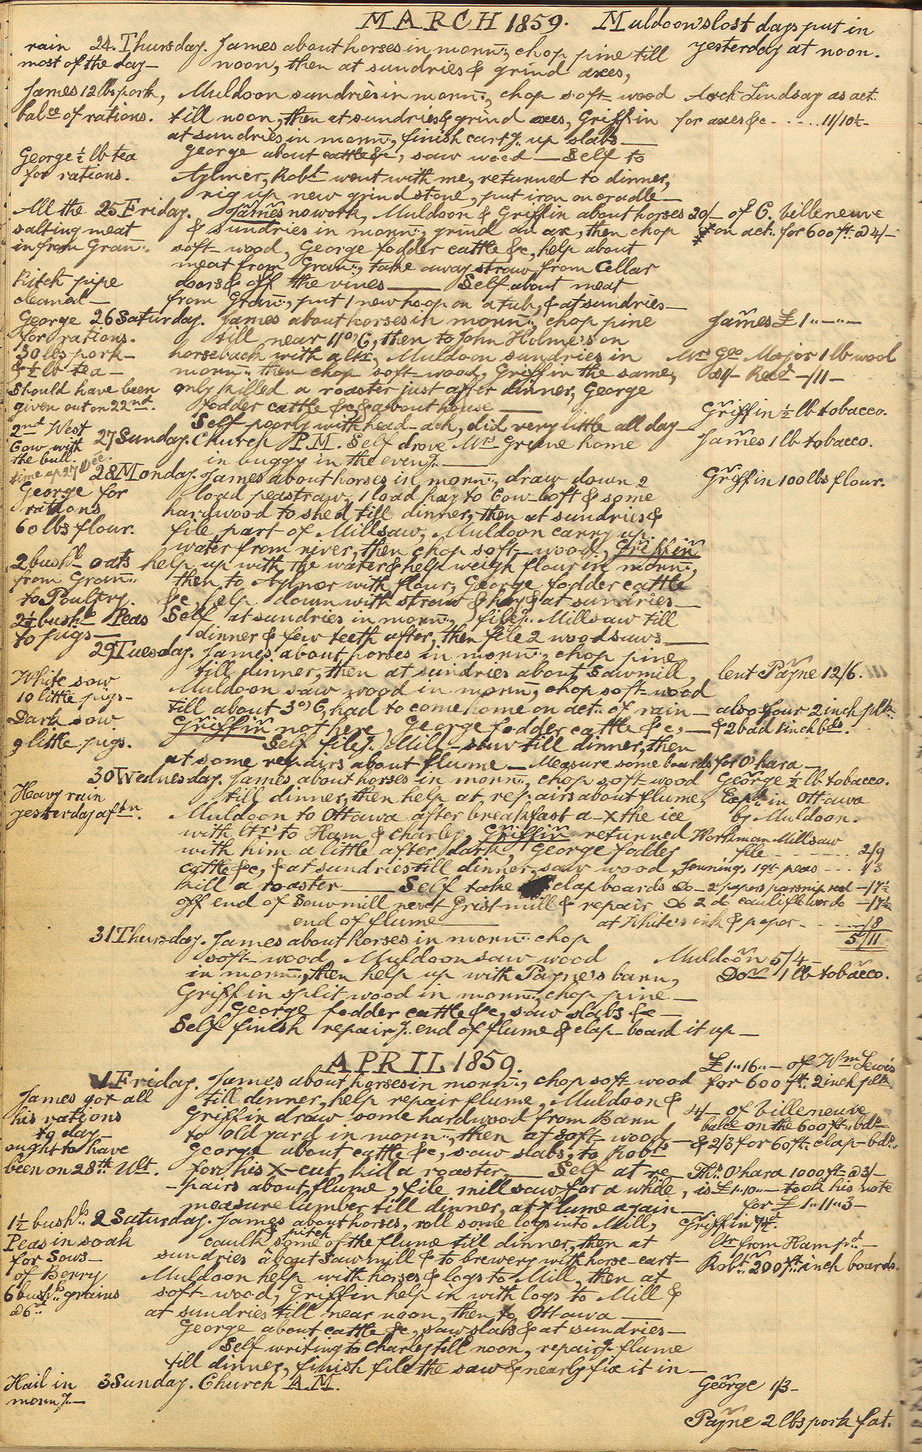 MARCH 1859. Muldoon's lost days put in
yesterday at noon.
rain 24. Thursday. James about horses in morng, chop pine till
most of the day— noon, then at sundries & grind axes,
James 12 lbs pork, Muldoon sundries in morng, chop soft wood Arch Lindsay as act.
balce of rations. till noon, then at sundries & grind axes, Griffin for axes &c - - - - 11/10½
at sundries in morng, finish cartg. up slabs—
George ½ lb tea George about cattle &c, saw wood — Self to
for rations. Aylmer, Robt went with me, returned to dinner,
rig up new grindstone, put iron on cradle—
All the 25 Friday. James no work, Muldoon & Griffin about horses 20/- of C. Villeneuve
salting meat & sundries in morng, grind an ax, then chop on act. for 600 ft. @ 4/-
in from Grany. soft wood, George fodder cattle &c, help about
meat from Grany, take away straw from Cellar
Pitch pipe doors & off the vines — Self about meat
cleaned— from Grany, put 1 new hoop on a tub, & at sundries—
George 26 Saturday. James about horses in morng, chop pine James £ 1.. - .. -
for rations. till near 11 o'C, then to John Holmes's on
30 lbs pork— horseback with a lttr, Muldoon sundries in Mrs Geo Major 1 lb wool
& ½ lb tea— morng, then chop soft wood, Griffin the same,
should have been only killed a roaster just after dinner, George
given out on 22nd. fodder cattle &c & about house— Griffin ½ lb tobacco.
Self poorly with head-ach, did very little all day
2nd West 27 Sunday. Church P.M. Self drove Mrs Greene home James 1 lb tobacco.
Cow with the bull. in buggy in the eveng.
28 Monday. James about horses in morng, draw down 2 Griffin 100 lbs flour.
George for load peastraw, 1 load hay to Cow loft & some
rations hardwood to shed till dinner, then at sundries &
60 lbs flour. file part of Millsaw, Muldoon carry up
water from river, then chop soft wood, Griffin
2 bushl oats help up with the water & help weigh flour in morng,
from Grany. then to Aylmer with flour, George fodder cattle
to Poultry. &c, help down with straw & hay & at sundries—
2½ bushl Peas Self at sundries in morng, fileg. Millsaw till
to pigs— dinner & few teeth after, then file 2 woodsaws—
29 Tuesday. James about horses in morng, chop pine
till dinner, then at sundries about Sawmill, lent Payne 12/6.
White sow Muldoon saw wood in morng, chop soft wood
10 little pigs— till about 3 o'C, had to come home on act. of rain— also four 2 inch plk
Dark sow Griffin not here, George fodder cattle &c,— & 2 bad 1 inch bds.
9 little pigs. Self fileg. Mill-saw till dinner, then
at some repairs about flume— Measure some boards for O'hara—
30 Wednesday. James about horses in morng, chop soft wood George ½ lb tobacco.
Heavy rain till dinner, then help at repairs about flume, Expd. in Ottawa
yesterday aftn. Muldoon to Ottawa after breakfast a-X the ice by Muldoon.
with ltrs to Ham & Charley, Griffin returned Workman Millsaw
with him a little after dark, George fodder file - - - - - - - - 2/9
cattle &c, & at sundries till dinner, saw wood, Jennings 1 qt peas - - - 1/3
kill a roaster — Self take clap boards Do - 2 papers parsnip seed - 17½
off end of Sawmill next Grist-mill & repair Do 2 do cauliflwr do - 17½
end of flume— at White's ink & paper - - - - /8
5/11
31 Thursday. James about horses in morng. chop
soft wood, Muldoon saw wood Muldoon 5/4—
in morng, then help up with Payne's barn, Do 1 lb tobacco.
Griffin split wood in morng, chop pine—
George fodder cattle &c, saw slabs &c—
Self finish repairg. end of flume & clap-board it up—
APRIL 1859.
£ 1..16..- of Wm Lewis
1 Friday. James about horses in morng, chop soft wood for 600 ft. 2 inch plk
James got all till dinner, help repair flume, Muldoon &
his rations Griffin draw some hardwood from Barn 4/- of Villeneuve
to day to Old yard in morng, then at soft wood— balce on the 600 ft. bds
ought to have George about cattle &c, saw slabs, to Robt & 2/3 for 60 ft. clap-bds.
been on 28th Ult. for his X-cut, kild a roaster— Self at re Thos. O'hara 1000 ft. @ 3/-
-pairs about flume, file mill saw for a while, is £1..10..- took his note
measure lumber till dinner, at flume again— for £ 1..11..3—
1½ bushls 2 Saturday. James about horses, roll some logs into Mill, Griffin
Peas in soak caulk & pitch some of the flume till dinner, then at ltr from Ham pd—
for Sows— sundries about Sawmill & to brewery with horse-cart— Robt. 200 ft. inch boards.
of Berry Muldoon help with horses & logs to Mill, then at
6 bushls grains soft wood, Griffin help in with logs to Mill &
at sundries till near noon, then to Ottawa—
George about cattle &c, saw slabs & at sundries—
Self writing to Charley till noon, repairg. flume
till dinner, finish file the saw & nearly fix it in—
Hail in 3 Sunday. Church A.M. George 1/3—
morng.— Payne 2 lbs pork fat.